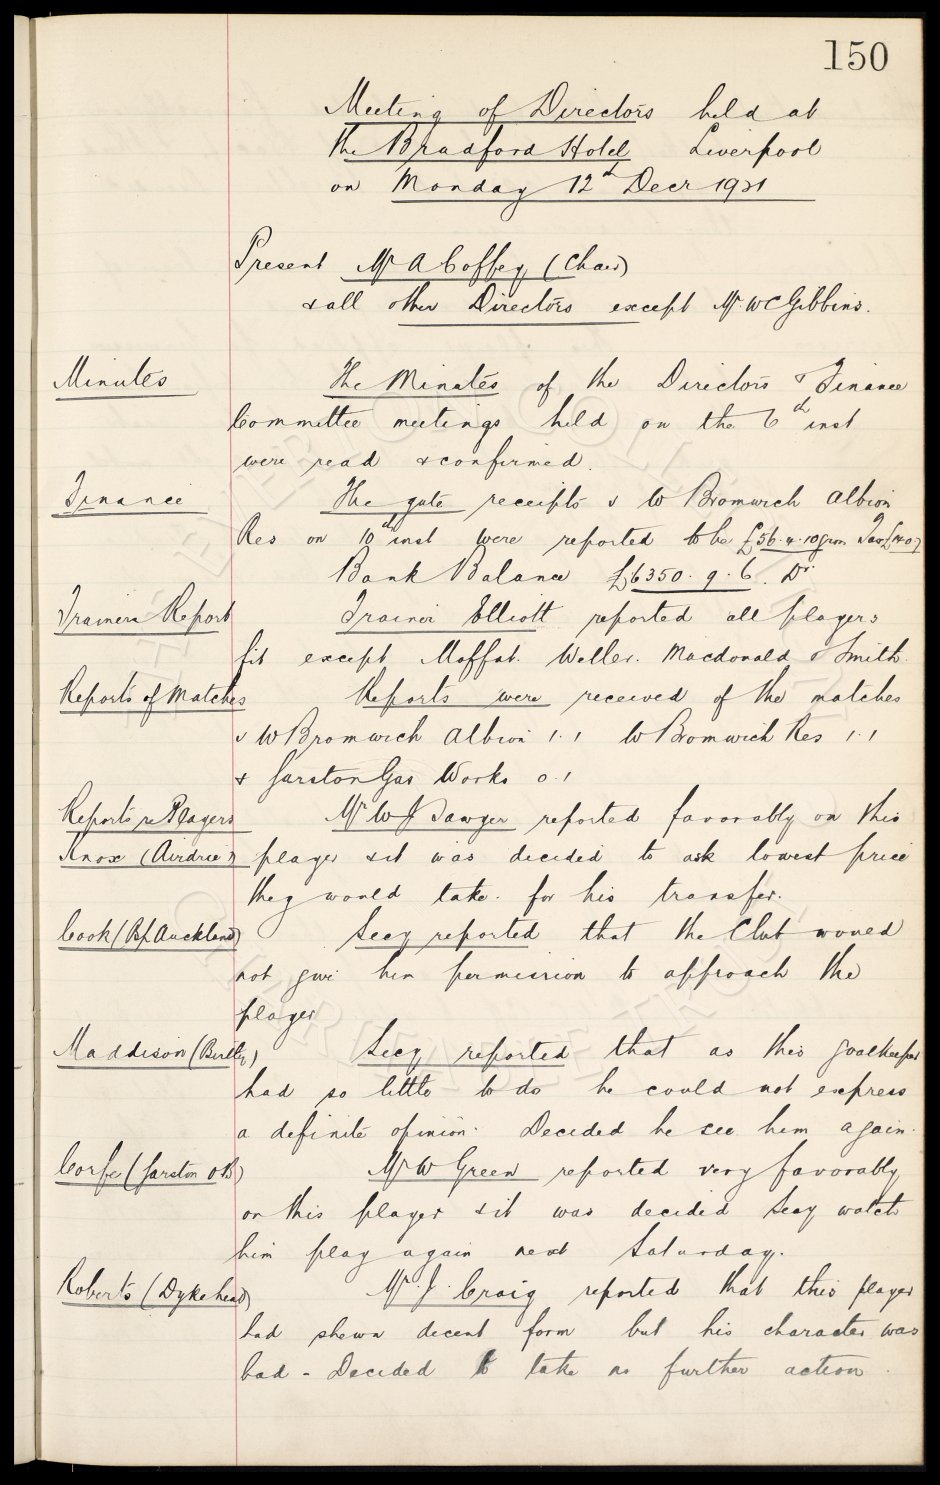 150
Meeting of Directors held at
the Bradford Hotel Liverpool
on Monday 12th Decr 1921
Present Mr A Coffey (Chair)
& all other Directors except Mr. W C Gibbins.
Minutes The Minutes of the Directors & Finance
Committee meetings held on the 6th inst
were read & confirmed.
Finance The gate receipts v W Bromwich Albion
Res on 10th inst were reported to be £56.4.10 from Tax
Bank Balance £6350.9.6. Dr.
Trainers Report Trainer Elliott reported all players
fit except Moffat. Weller. Macdonald & Smith.
Reports of Matches Reports were received of the matches
v W Bromwich Albion 1.1 W Bromwich Res 1.1
& Garston Gas Works 0.1
Reports re Players Mr W J Sawyer reported favorably on this
Knox (Airdrie) player & it was decided to ask lowest price
they would take. for his transfer.
Cook (Bp. Auckland) Secy reported that the Club would
not give him permission to approach the
player
Maddison (Birtley) Secy reported that as this goalkeeper
had so little to do he could not express
a definite opinion. Decided he see him again.
Corfe (Garston OB) Mr W Green reported very favorably
on this player & it was decided Secy watch
him play again next Saturday.
Roberts (Dykehead) Mr. J. Craig reported that this player
had shewn decent form but his character was
bad - Decided to take no further action.